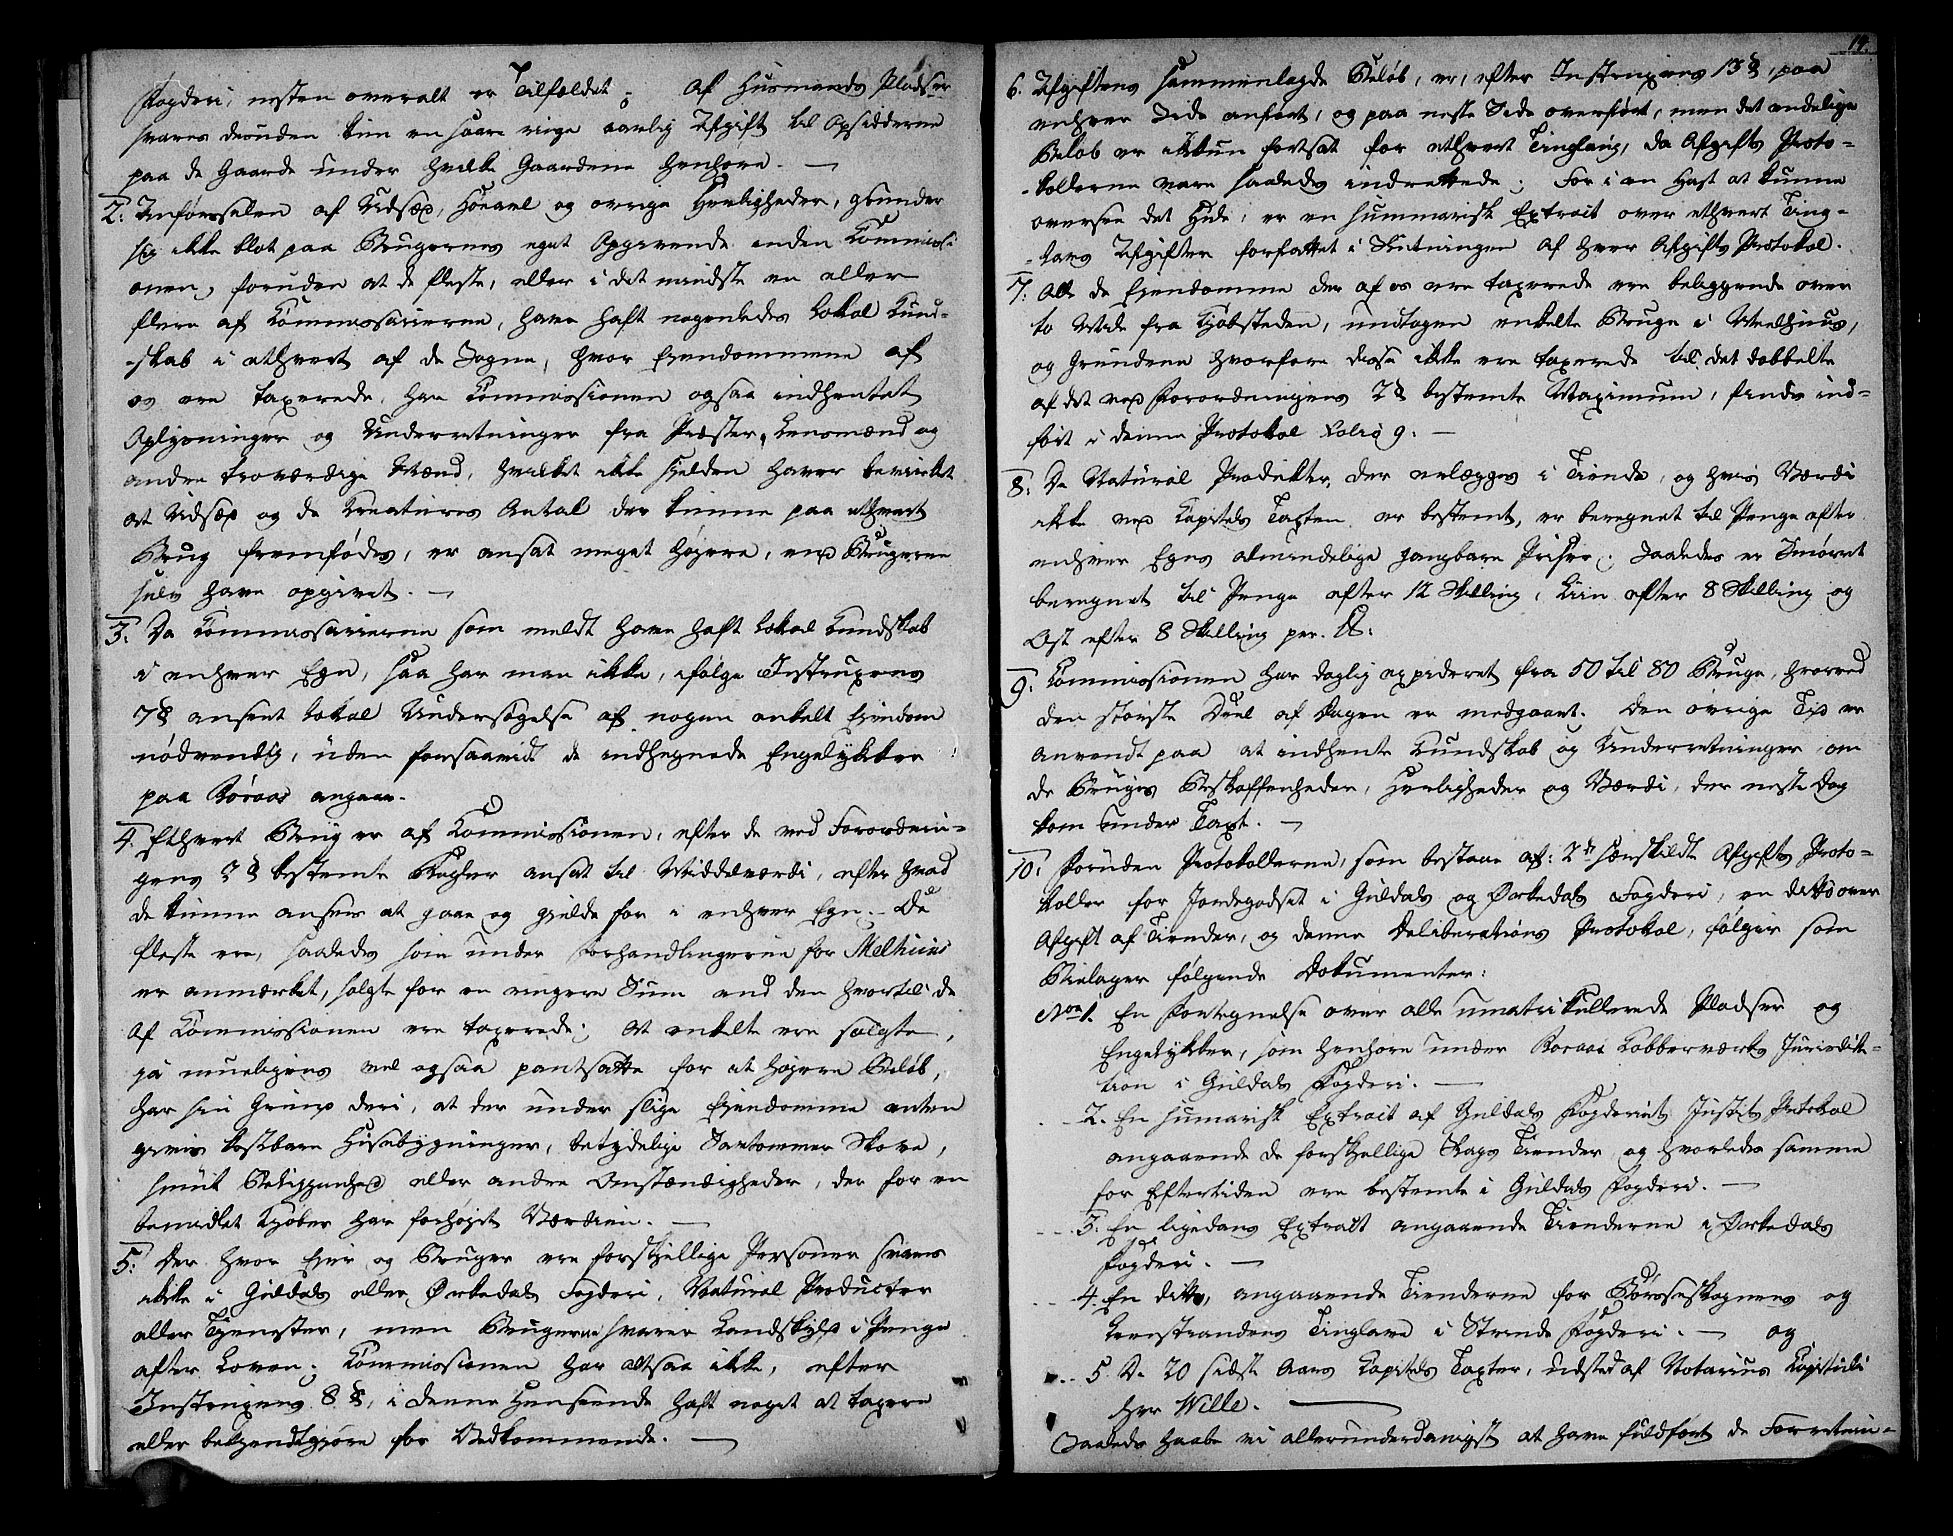 Fogderi, nesten overalt er Tilfældet; af Huusmands Pladser
svares desuden kun en saare ringe aarlig Afgift til Opsidderne
paa de Gaarde under hvilke Gaardene henhøre. —
2. Anførselen af Udsæd, Høeavl og øvrige Herligheder, grunder
sig ikke blot paa Brugernes eget Opgivende inden Commissi-
onen, foruden at de fleste, eller i det mindste en eller
flere af Commissairerne, have haft nogenledes Lokal Kund-
-skab i ethvert af de Sogne, hvor Eiendommene af
os ere taxerede, har Commissionen ogsaa indhentet
Oplysninger og Underretninger fra Præster, Lensmænd og
andre troværdige Mænd, hvilket ikke sielden haver bevirket
at Udsæd og de Kreatures Antal der kunne paa ethvert
Brug fremfødes, er ansat meget høyere, end Brugerne
selv have opgivet. —
3. Da Commissairerne som meldt have haft Lokal Kundskab
i enhver Egn, saa har man ikke, ifølge Instruxens
7§ anseet Lokal Undersøgelse af nogen enkelt Eiendom
nødvendig, uden forsaavidt de indhegnede Engelykker
paa Røraas angaae.
4. Ethvert Brug er af Commissionen, efter de ved Forordnin-
gens 2§ bestemte Regler ansat til Middelværdi, efter hvad
de kunne ansees at gaae og gielde for i enhver Egn. — De
fleste ere, saaledes som under Forhandlingerne for Melhuus
er anmærket, solgte for en ringere Sum end den hvortil de
af Commissionen ere taxerede; at enkelte ere solgte,
ja mueligens vel ogsaa pantsatte for et høyere Beløb,
har sin Grund deri, at der under slige Eiendomme enten
gives kostbare Husebygninger, betydelige Sautømmer Skove,
smuk Beliggenhed eller andre Omstændigheder, der for en
bemidlet Kjøber har forhøyet Værdien. —
5. Der hvor Eier og Bruger ere forskjellige Personer svares
ikke i Guldals eller Ørkedals Fogderi, Natural Producter
eller Tjenester, men Brugerne svarer Landskyld i Penge
efter Loven; Commissionen har altsaa ikke, efter
Instruxens 8§, i denne Henseende haft noget at taxere
eller bekjendtgjøre for Vedkommende. —
14.
6. Afgiftens sammenlagde Beløb, er, efter Instruxens 13§, paa
enhver Side anført, og paa neste Side overført, men det endelige
Beløb er ikkun fortsat for ethvert Tinglaug, da Afgifts Proto-
-kollerne vare saaledes indrettede; For i en Hast at kunne
oversee det Hele, er en summarisk Extrait over ethvert Ting-
-laws Afgifter forfattet i Slutningen af hver Afgifts Protokol.
7. Alle de Eiendomme der af os ere taxerede ere beliggende over
to Miile fra Kjøbsteden, undtagen enkelte Bruge i Melhuus,
og Grundene hvorfore disse ikke ere taxerede til det dobbelte
af det ved Forordningens 2§ bestemte Maximum, findes ind-
ført i denne Protokol Folio 9. —
8. De Natural Produkter, der erlægges i Tiende, og hvis Værdi
ikke ved Kapitels Taxten er bestemt, er beregnet til Penge efter
enhver Egns almindelige gangbare Priser; Saaledes er Smørret
beregnet til Penge efter 12 Skilling, Liin efter 8 Skilling og
Ost efter 8 Skilling per. ℔.
9. Commissionen har daglig expideret fra 50 til 80 Bruge, hvorved
den største Deel af Dagen er medgaaet. Den øvrige Tid er
anvendt paa at indhente Kundskab og Underretninger om
de Bruges Beskaffenheder, Herligheder og Værdi, der neste Dag
kom under Taxt. —
10. Foruden Protokollerne, som bestaae af: 2de særskildte Afgifts Proto-
koller for Jordegodset i Guldals og Ørkedals Fogderi, en ditto over
Afgift af Tiender, og denne Deliberations Protokol, følger som
Bielager følgende Dokumenter:
Nro 1. En Fortegnelse over alle umatrikullerede Pladser og
Engelykker, som henhøre under Røraas Kobberværks Jurisdik-
tion i Guldals Fogderi. —
- 2. En sumarisk Extrait af Guldals Fogderiets Justits Protokol
angaaende de forskjellige Slags Tiender og hvorledes samme
for Eftertiden ere bestemte i Guldals Fogderi. —
- 3. En ligedans Extrait angaaende Tienderne i Ørkedals
Fogderi. —
- 4. En ditto, angaaende Tienderne for Børseskognens og
Leerstrandens Tinglave i Strinde Fogderi. — og
- 5. De 20 sidste Aars Kapitels Taxter, udsted af Notarius Kapituli
Herr Wille. —
Saaledes haabe vi allerunderdanigst at have fuldført de Forretnin-